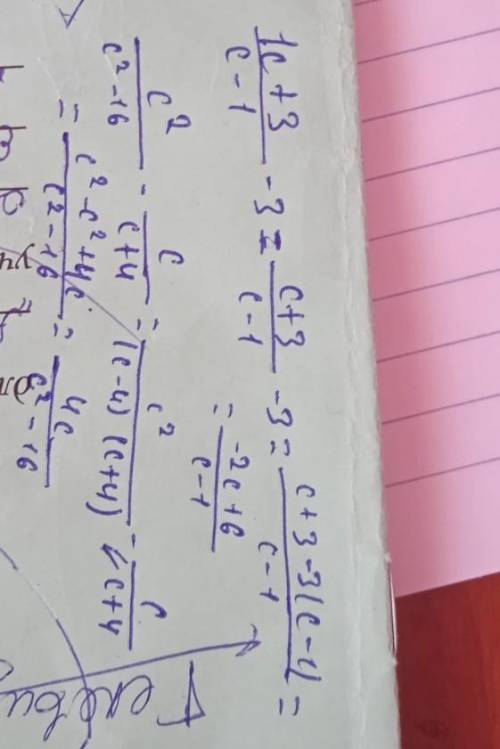 1c+3/c-1 - 3 = c+3/c-1 - 3 = c+3-3(c-1)/c-1 =
= -2c+6/c-1
c²/c²-16 - c/c+4 = c²/(c-4)(c+4) - c/c+4
= c²-c²+4c/c²-16 = 4c/c²-16